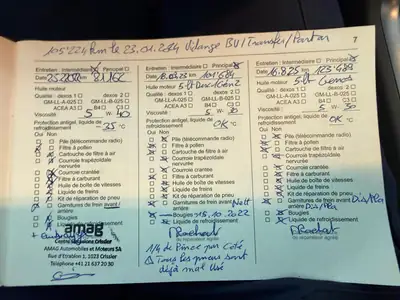 105'224 Km le 23.01.2024 Vidange BV/Transfer/Pont AR
7
Entretien : Intermédiaire Principal
Date 81'162
Huile moteur
Qualité : dexos 1 dexos 2
GM-LL-A-025 GM-LL-B-025
ACEA A3 B4 C3
Viscosité 5 W- 40
Protection antigel, liquide de
refroidissement -25 °C
Oui Non
Pile (télécommande radio)
Filtre à pollen
Cartouche de filtre à air
Courroie trapézoïdale
nervurée
Courroie crantée
Filtre à carburant
Huile de boîte de vitesses
Liquide de freins
Kit de réparation de pneu
Garnitures de frein avant /
arrière
Bougies
Liquide de refroidissement
amag
Centre Occasions Crissier
AMAG Automobiles et Moteurs SA
Rue d'Etoblon 1, 1023 Crissier
Téléphone +41 21 637 20 30
Entretien : Intermédiaire Principal
Date 18.03.23 101'584
Huile moteur
Qualité : dexos 1 dexos 2
GM-LL-A-025 GM-LL-B-025
ACEA A3 B4 C3
Viscosité 5 W- 30
Protection antigel, liquide de
refroidissement OK °C
Oui Non
Pile (télécommande radio)
Filtre à pollen
Cartouche de filtre à air
Courroie trapézoïdale
nervurée
Courroie crantée
Filtre à carburant
Huile de boîte de vitesses
Liquide de freins
Kit de réparation de pneu
Garnitures de frein avant /
arrière
Bougies 15.10.2022
Liquide de refroidissement
du réparateur agréé
Entretien : Intermédiaire Principal
Date 16.8.25 123'489
Huile moteur
Qualité : dexos 1 dexos 2
GM-LL-A-025 GM-LL-B-025
ACEA A3 B4 C3
Viscosité 5 W- 30
Protection antigel, liquide de
refroidissement OK °C
Oui Non
Pile (télécommande radio)
Filtre à pollen
Cartouche de filtre à air
Courroie trapézoïdale
nervurée
Courroie crantée
Filtre à carburant
Huile de boîte de vitesses
Liquide de freins
Kit de réparation de pneu
Garnitures de frein avant /
arrière
Bougies
Liquide de refroidissement
du réparateur agréé